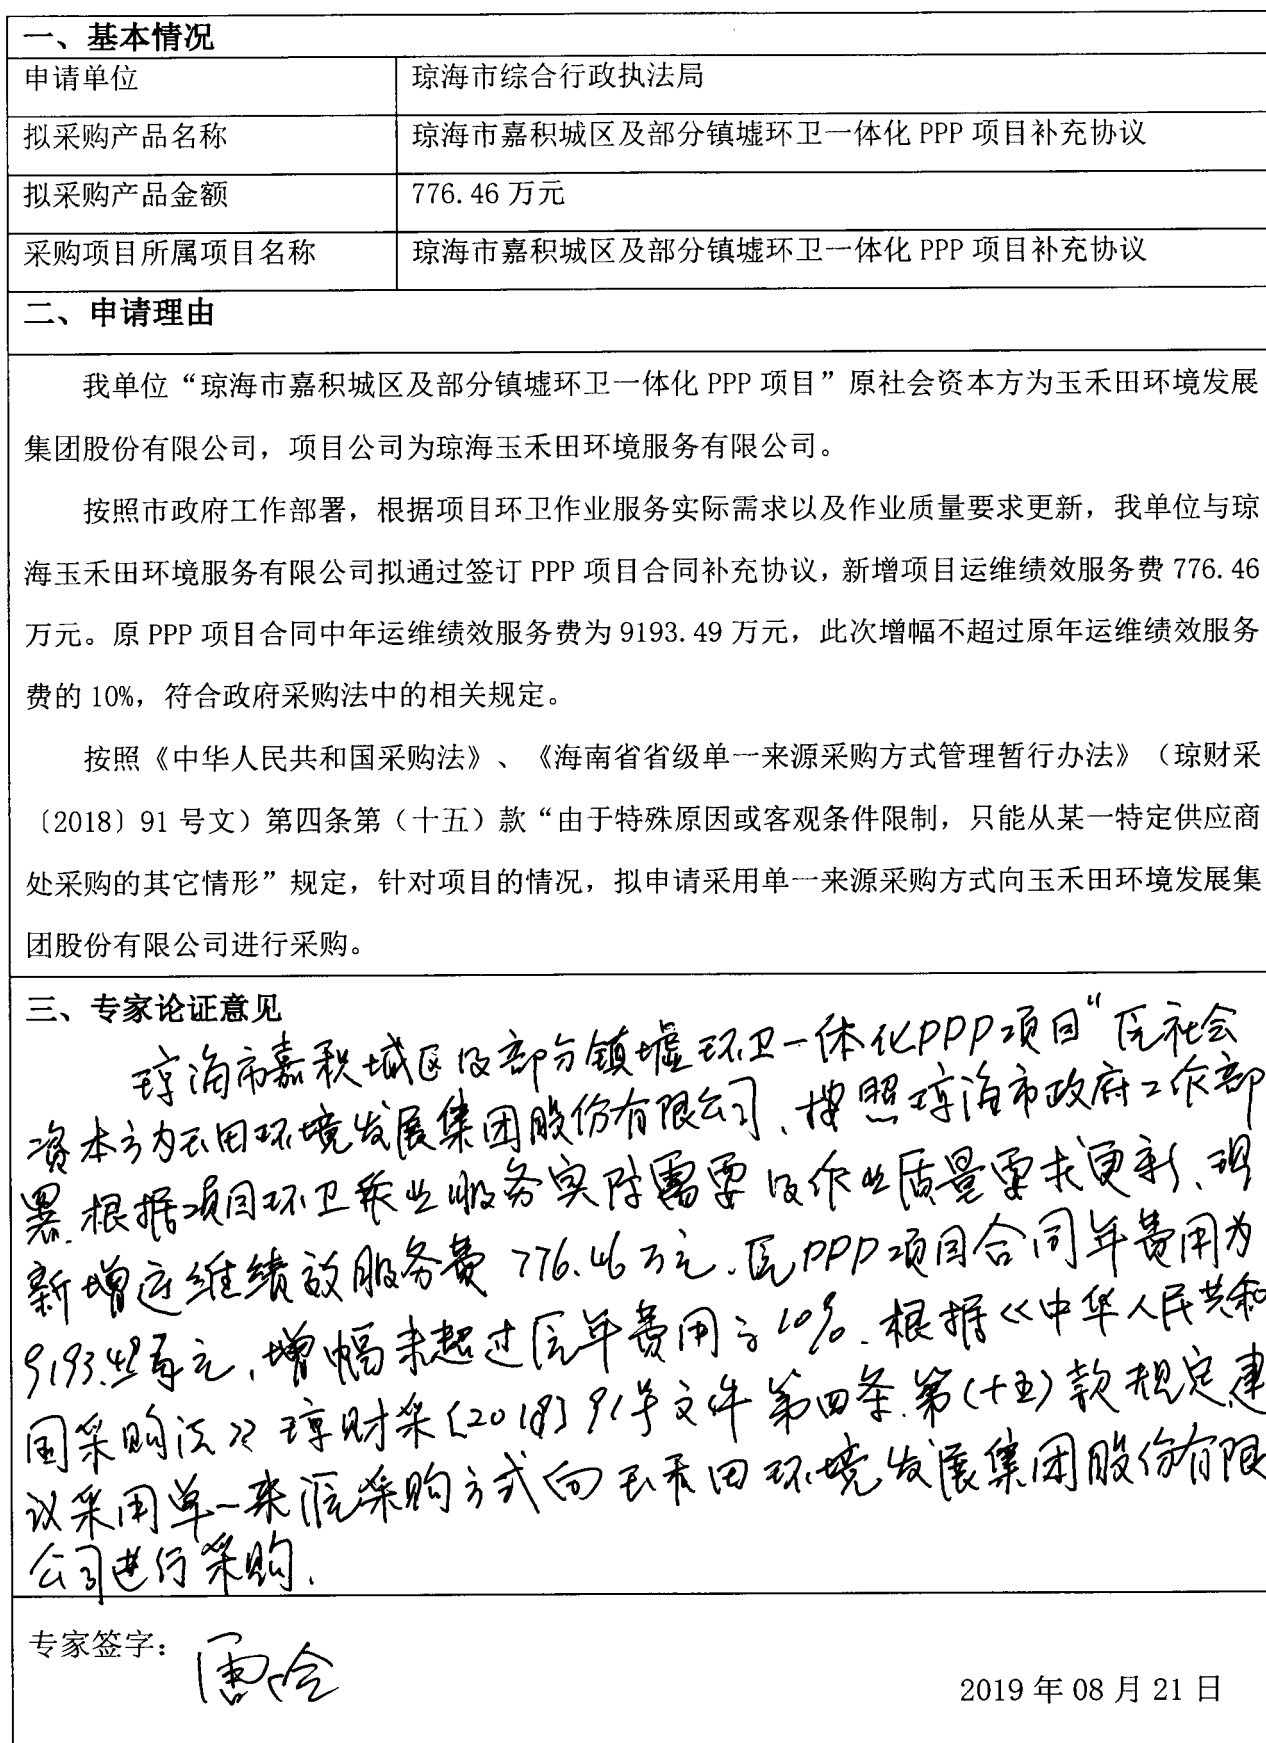 一、基本情况
申请单位 琼海市综合行政执法局
拟采购产品名称 琼海市嘉积城区及部分镇墟环卫一体化 PPP 项目补充协议
拟采购产品金额 776.46 万元
采购项目所属项目名称 琼海市嘉积城区及部分镇墟环卫一体化 PPP 项目补充协议
二、申请理由
我单位“琼海市嘉积城区及部分镇墟环卫一体化 PPP 项目”原社会资本方为玉禾田环境发展
集团股份有限公司，项目公司为琼海玉禾田环境服务有限公司。
按照市政府工作部署，根据项目环卫作业服务实际需求以及作业质量要求更新，我单位与琼
海玉禾田环境服务有限公司拟通过签订 PPP 项目合同补充协议，新增项目运维绩效服务费 776.46
万元。原 PPP 项目合同中年运维绩效服务费为 9193.49 万元，此次增幅不超过原年运维绩效服务
费的 10%，符合政府采购法中的相关规定。
按照《中华人民共和国采购法》、《海南省省级单一来源采购方式管理暂行办法》（琼财采
〔2018〕91 号文）第四条第（十五）款“由于特殊原因或客观条件限制，只能从某一特定供应商
处采购的其它情形”规定，针对项目的情况，拟申请采用单一来源采购方式向玉禾田环境发展集
团股份有限公司进行采购。
三、专家论证意见
琼海市嘉积城区及部分镇墟环卫一体化PPP项目"原社会
资本方为玉田环境发展集团股份有限公司、按照琼海市政府工作部
署.根据项目环卫作业服务实际需要及作业质量要求更新、现
新增运维绩效服务费 776.46万元.原PPP项目合同年费用为
9193.49万元,增幅未超过原年费用之10%.根据《中华人民共和
国采购法》琼财采〔2018〕91号文件第四条.第(十五)款规定,建
议采用单一来源采购方式向玉禾田环境发展集团股份有限
公司进行采购.
专家签字：
2019 年 08 月 21 日